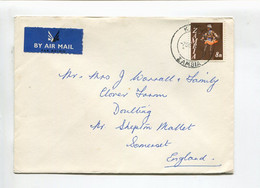 BY AIR MAIL
ZAMBIA
Mr. Mrs J Worrall & Family
Clover Farm
Doulting
Nr Shepton Mallet
Somerset
England.